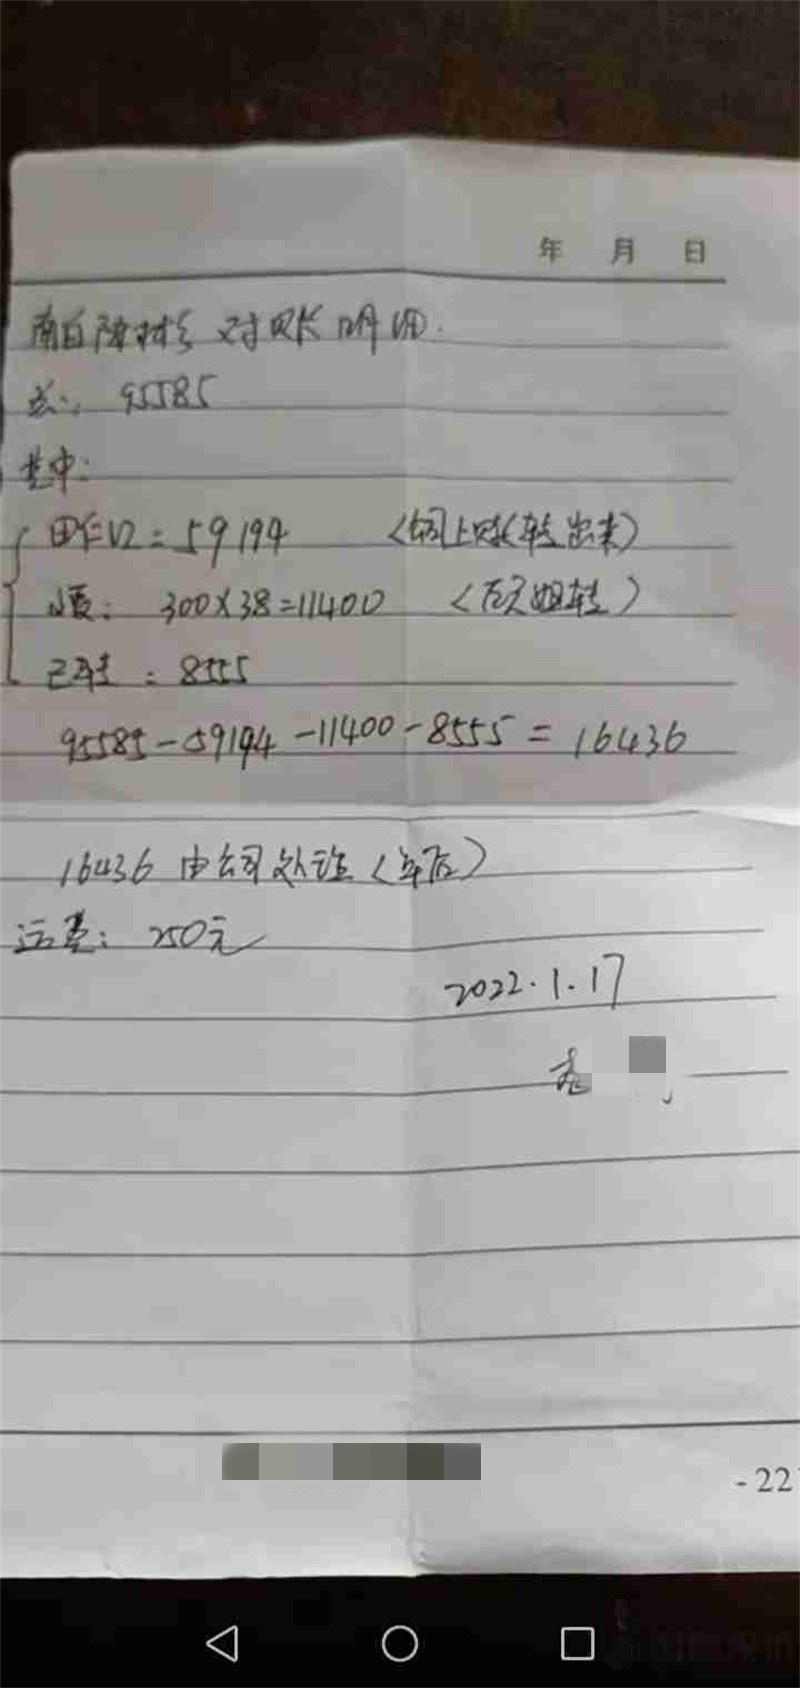 年 月 日
对账明细.
95585
其中:
= 59194 (公司上账转出来)
300×38=11400 (姐转)
已转: 8555
95585-59194-11400-8555=16436
16436 由公司处理(年后)
运费: 250元
2022.1.17
-22